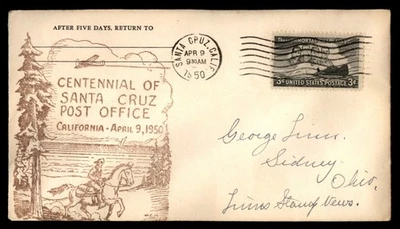 AFTER FIVE DAYS, RETURN TO
SANTA CRUZ, CALIF.
APR 9
9 30 AM
1950
CENTENNIAL OF
SANTA CRUZ
POST OFFICE
CALIFORNIA - APRIL 9, 1950
3¢ UNITED STATES POSTAGE 3¢
George Linn.
Sidney
Ohio.
Linns Stamp News.